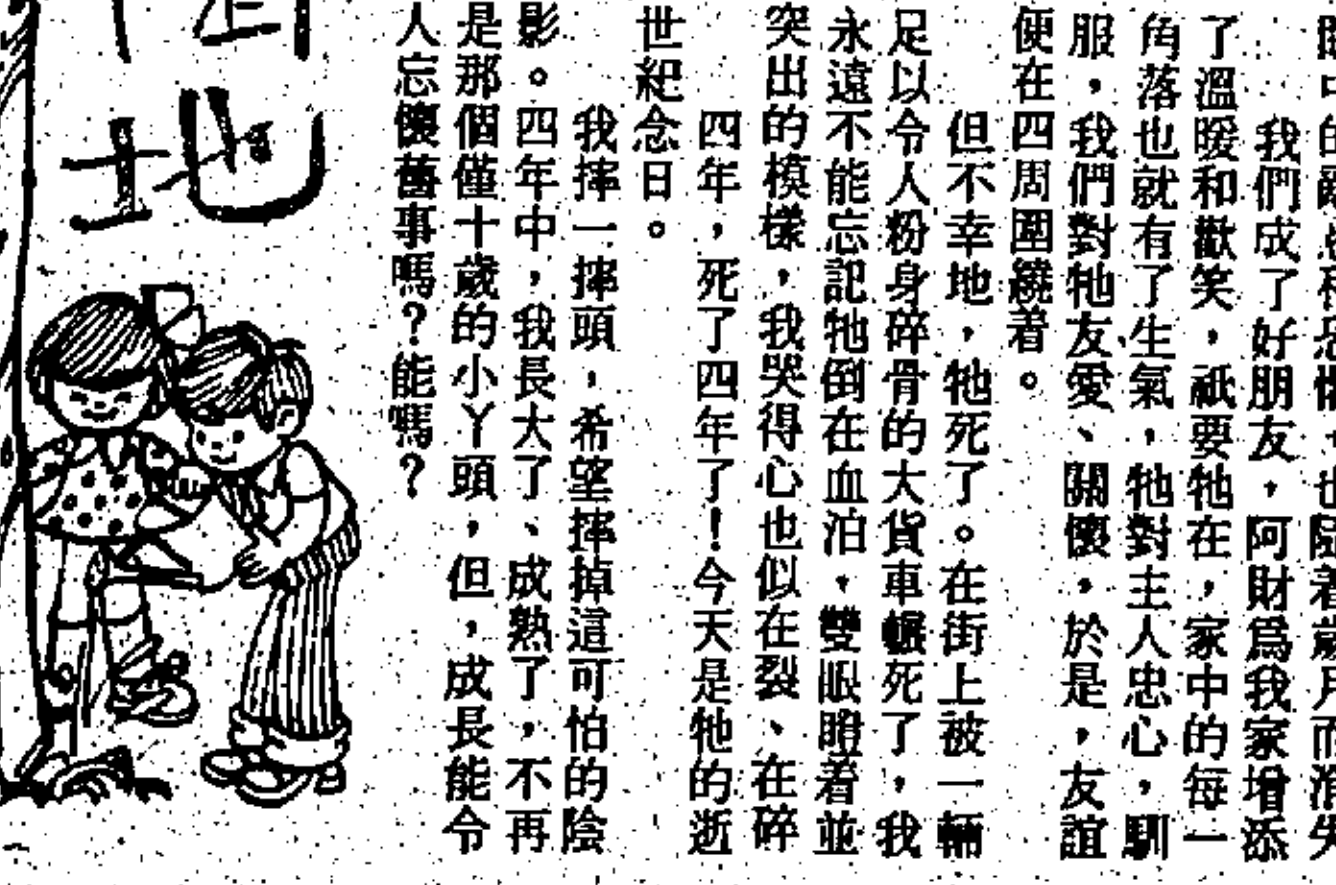 的　　也隨着歲月而消失
我們成了好朋友，阿財爲我家增添
了溫暖和歡笑，祇要牠在，家中的每一
角落也就有了生氣，牠對主人忠心，馴
服，我們對牠友愛、關懷，於是，友誼
便在四周圍繞着。
但不幸地，牠死了。在街上被一輛
足以令人粉身碎骨的大貨車輾死了，我
永遠不能忘記牠倒在血泊，雙眼瞪着並
突出的模樣，我哭得心也似在裂、在碎
四年，死了四年了！今天是牠的逝
世紀念日。
我摔一摔頭，希望摔掉這可怕的陰
影。四年中，我長大了、成熟了，不再
是那個僅十歲的小丫頭，但，成長能令
人忘懷舊事嗎？能嗎？
地